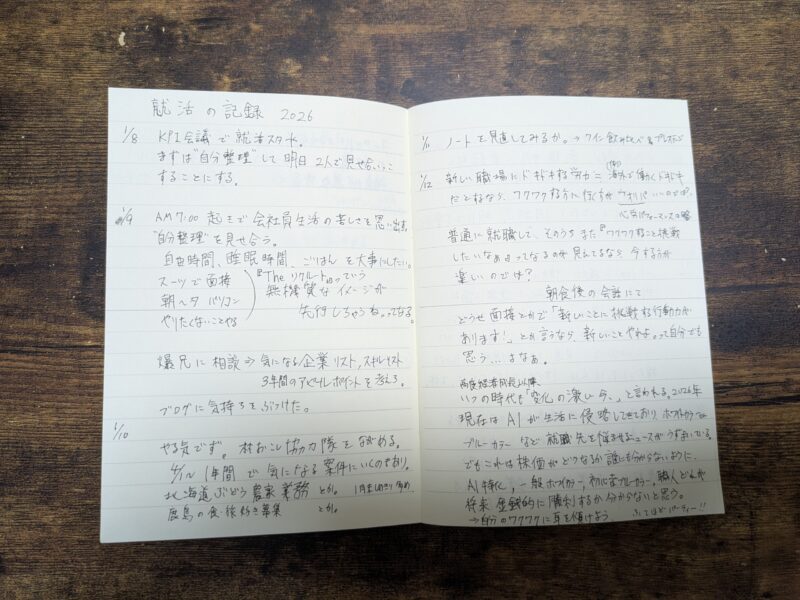 就活の記録 2026
1/8 KPI会議で就活スタート。
まずは"自分整理"して明日2人で見せ合いっこ
することにする。
1/9 AM7:00 起きで会社員生活の苦しさを思い出す。
"自分整理"を見せ合う。
自由時間、睡眠時間、ごはん を大事にしたい。
スーツで面接
朝ヘタ パソコン
やりたくないことやる
『The リクルート』っていう
無機質なイメージが
先行しちゃうね。ってなる。
爆兄に相談→気になる企業リスト,スキルリスト
3年間のアピールポイントを考える。
ブログに気持ちをぶつけた。
1/10
やる気です。村おこし協力隊をながめる。
1年間で気になる案件にいくのもあり。
北海道ぶどう農家業務 とか。
鹿島の食・移動き募集 とか。
1/11 ノートを見直してみるか。→ワイン飲み
1/12 新しい職場にドキドキする労力=海外で働くドキドキ
だとするなら、ワクワクする方に
普通に就職して、そのうちまた『ワクワクすること挑戦
したいなぁ』ってなるのが見えてるなら今する方が
楽しいのでは?
朝食後の会話にて
どうせ面接とかで「新しいことに挑戦する行動力が
あります!」とか言うなら、新しいことやれよ。って自分でも
思う…よなぁ。
高度経済成長以降
いつの時代も「変化の激しい今、」と言われる。2026年
現在はAIが生活に侵略してきており ホワイトカラー
ブルーカラーなど 就職先を悩ませるニュースがうずまいている。
でもこれは株価がどうなるか誰にも分からないように、
AI特化,一般ホワイトカラー,初心者ブルーカラー,職人どれが
将来 金銭的に「勝利」するか分からないと思う。
→自分のワクワクに耳を傾けよう